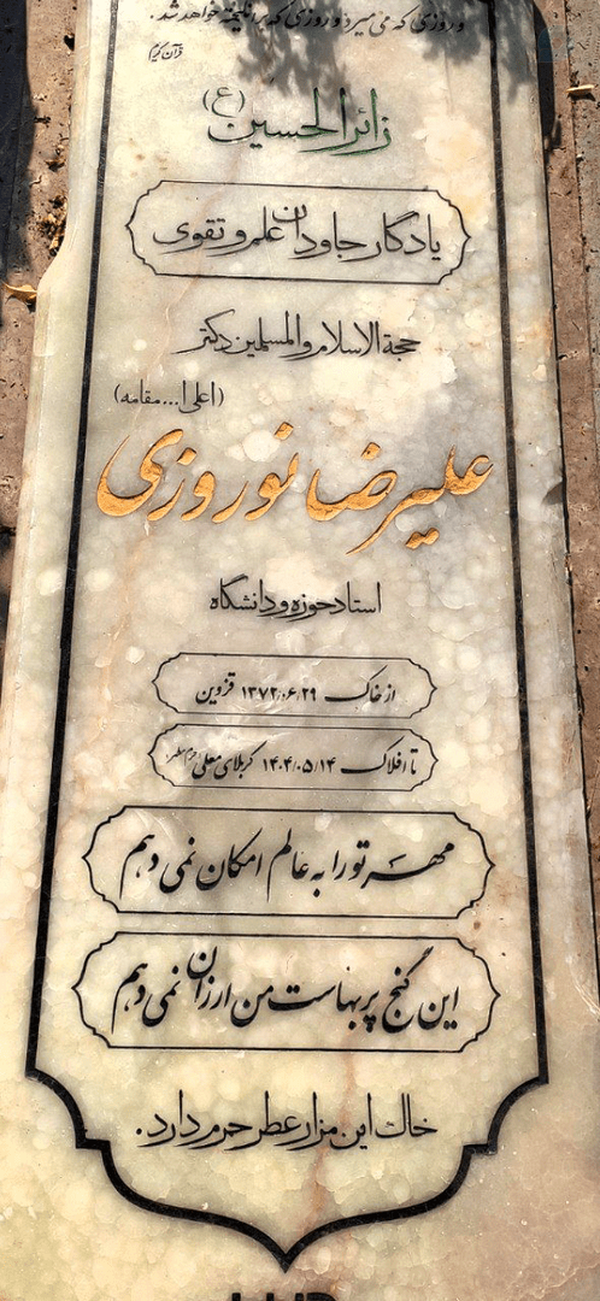 و روزی که می میرد و روزی که برانگیخته خواهد شد.
قرآن کریم
زائر الحسین (ع)
یادگار جاودان علم و تقوی
حجة الاسلام والمسلمین دکتر
(اعلی ا... مقامه)
علیرضا نوروزی
استاد حوزه و دانشگاه
از خاک ۱۳۷۲/۰۶/۲۹ قزوین
تا افلاک ۱۴۰۴/۰۵/۱۴ کربلای معلی
مهر تو را به عالم امکان نمی دهم
این گنج پربهاست من ارزان نمی دهم
خاک این مزار عطر حرم دارد.